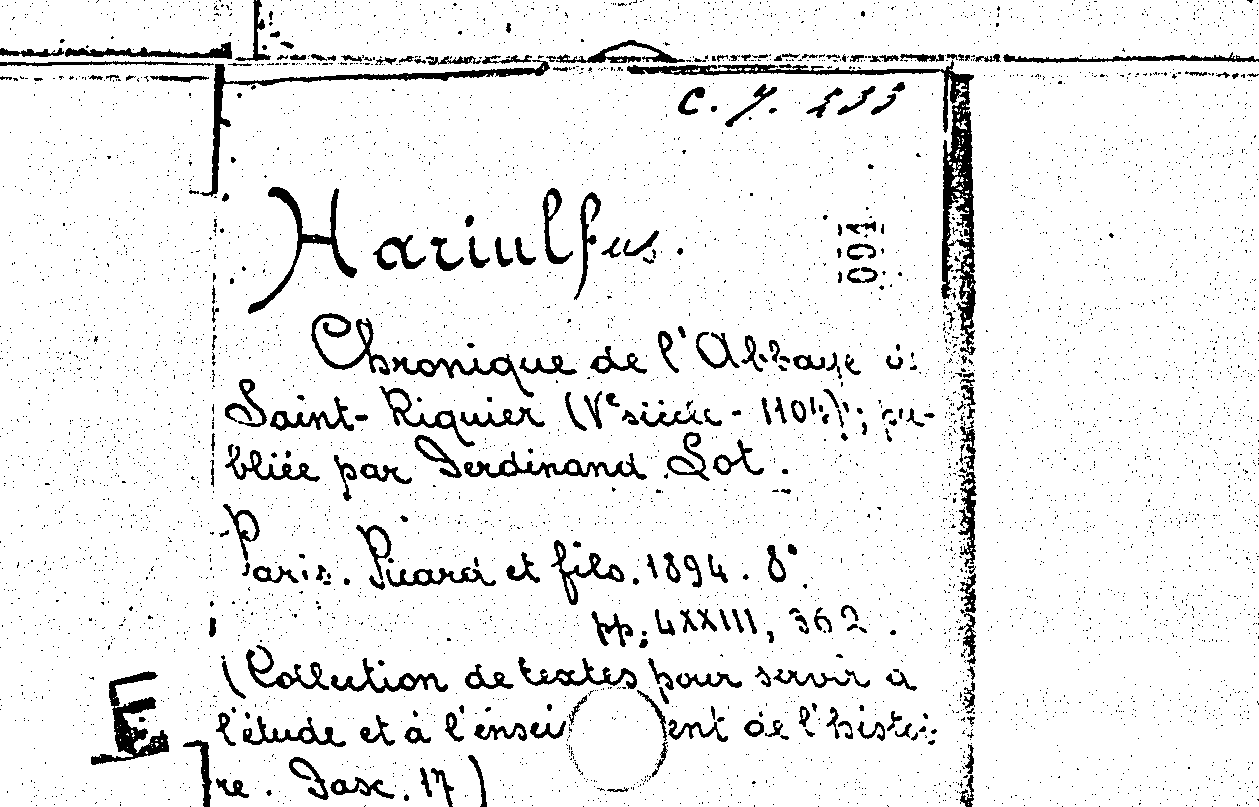 C. 7. 233
Hariulfus.
091
Chronique de l'Abbaye de
Saint-Riquier (Ve siècle - 1104); pu-
bliée par Ferdinand Lot.
Paris. Picard et fils. 1894. 8°.
pp. LXXIII, 362.
(Collection de textes pour servir à
l'étude et à l'ensei ent de l'histoi-
re. Fasc. 17)